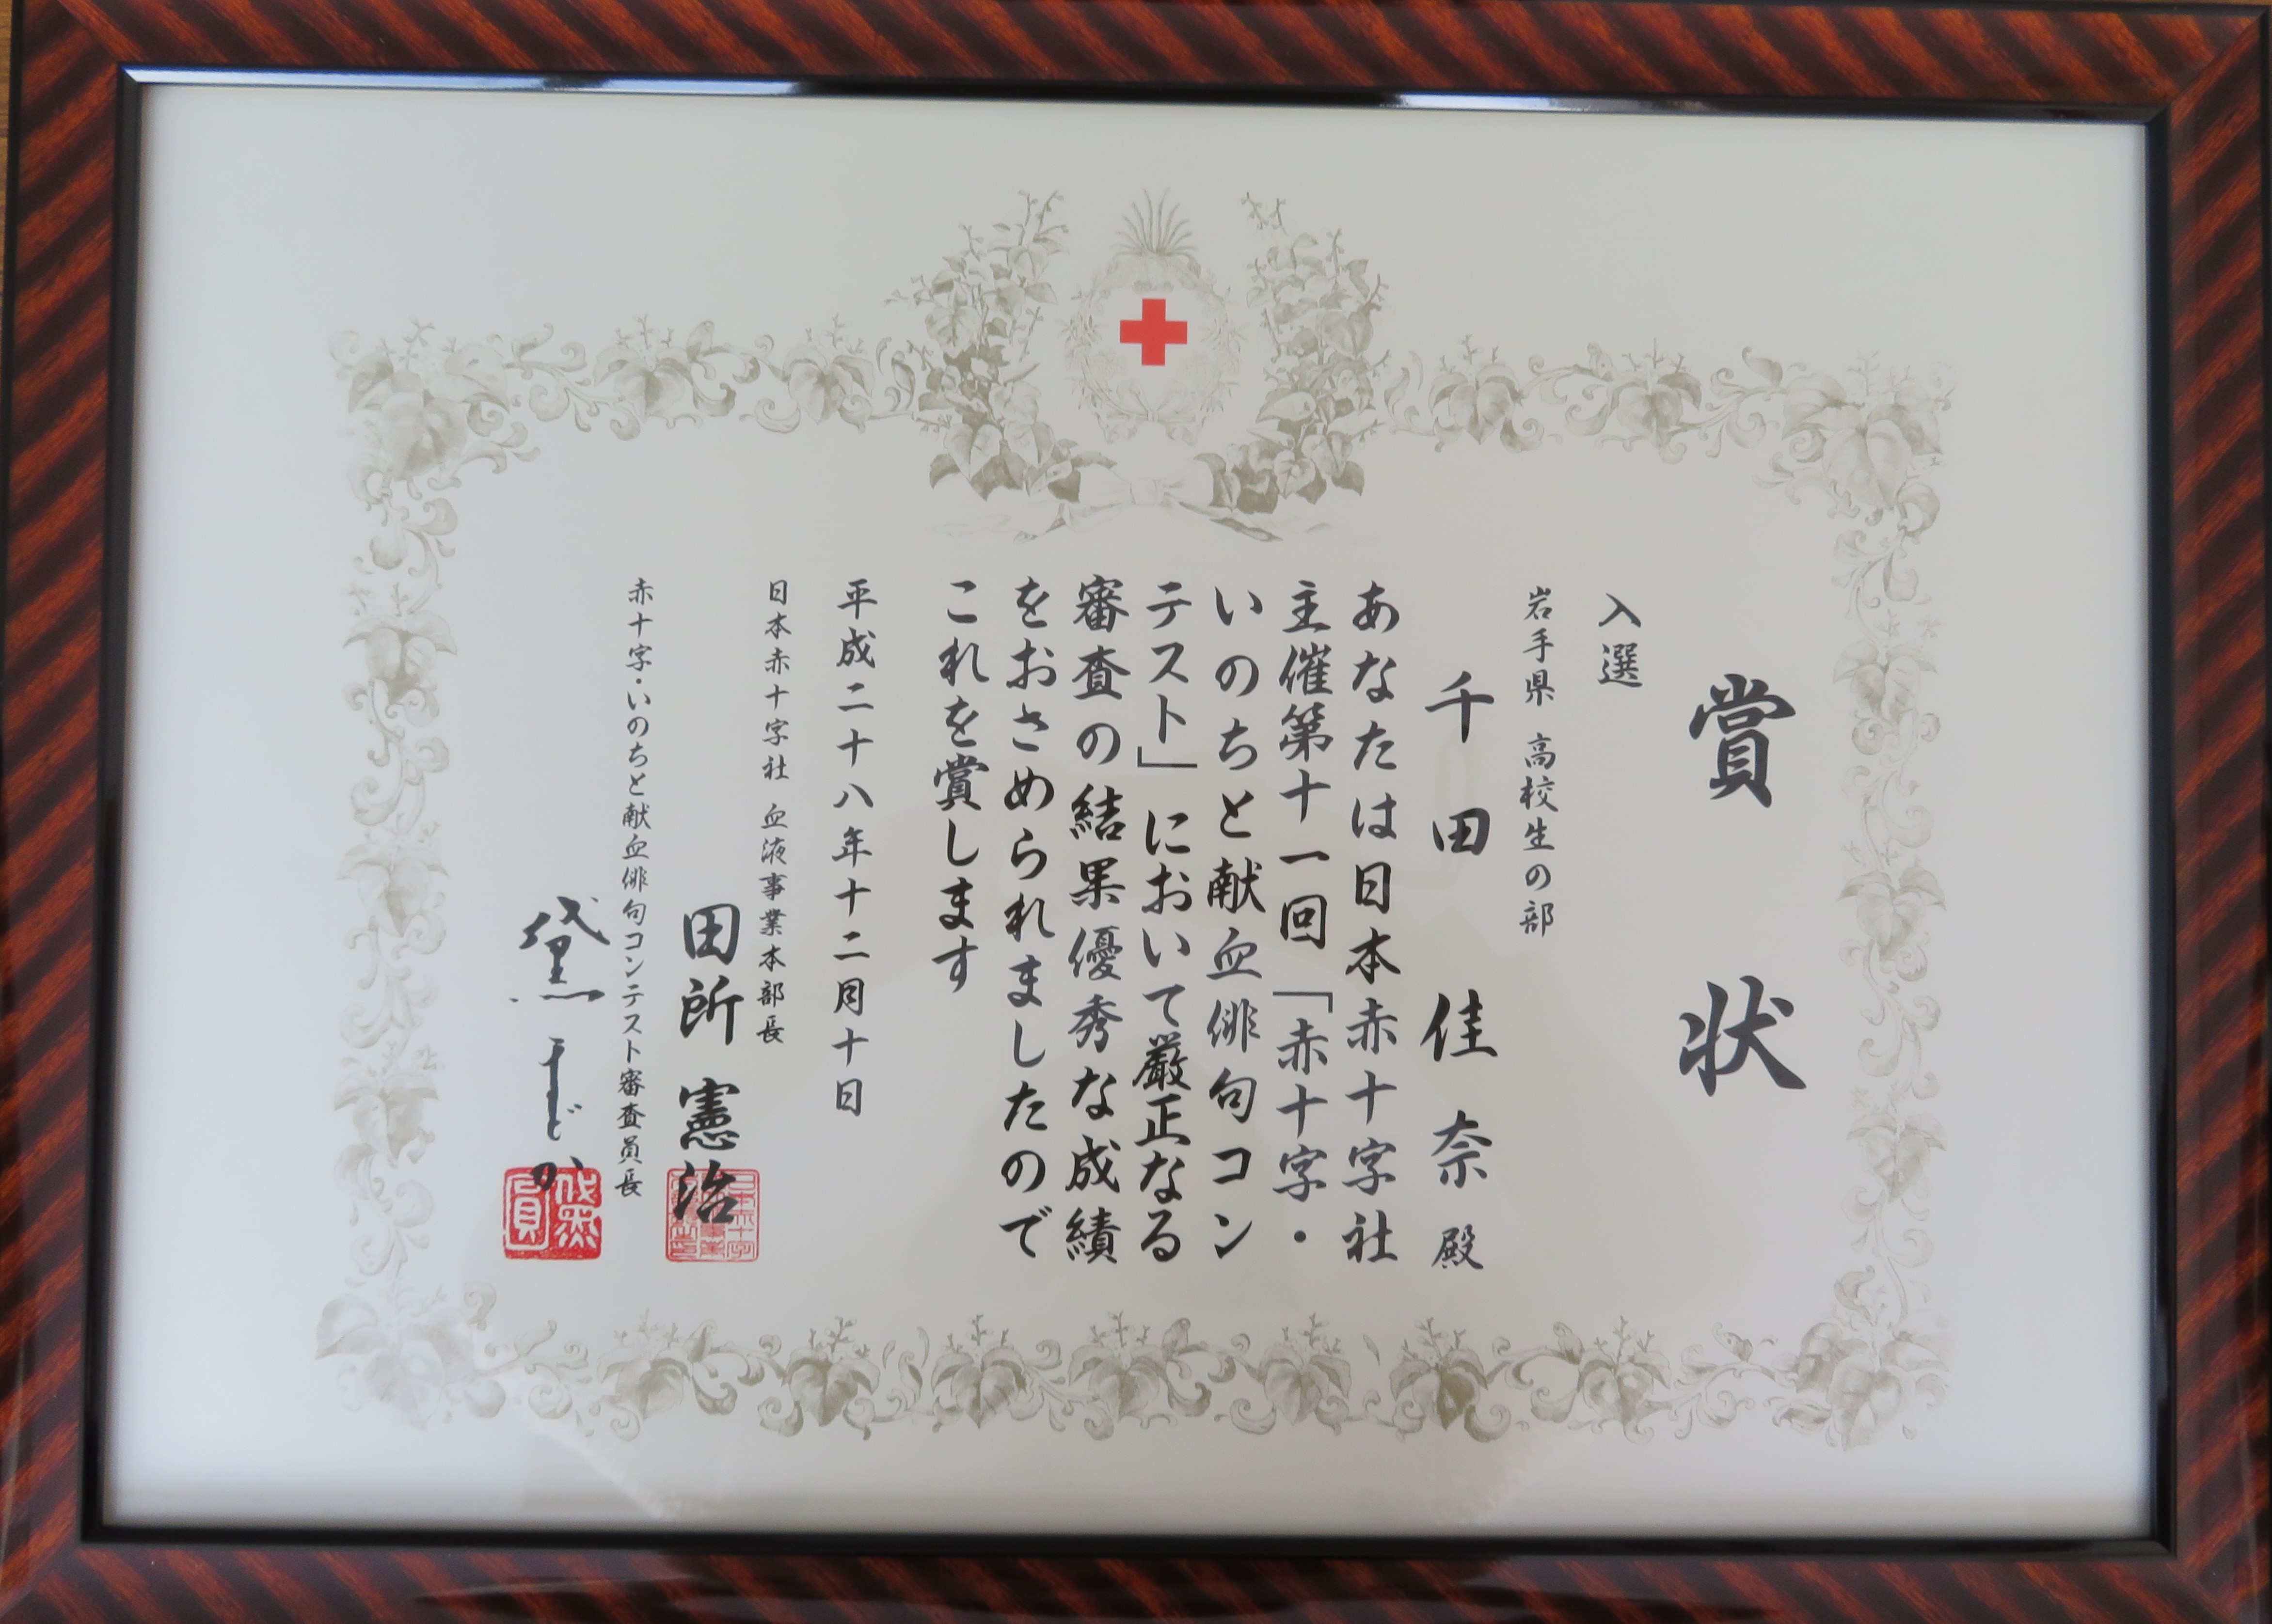 賞状
入選
岩手県 高校生の部
千田佳奈殿
あなたは日本赤十字社
主催第十一回「赤十字・
いのちと献血俳句コン
テスト」において厳正なる
審査の結果優秀な成績
をおさめられましたので
これを賞します
平成二十八年十二月十日
日本赤十字社 血液事業本部長
田所憲治
赤十字・いのちと献血俳句コンテスト審査員長
黛まどか